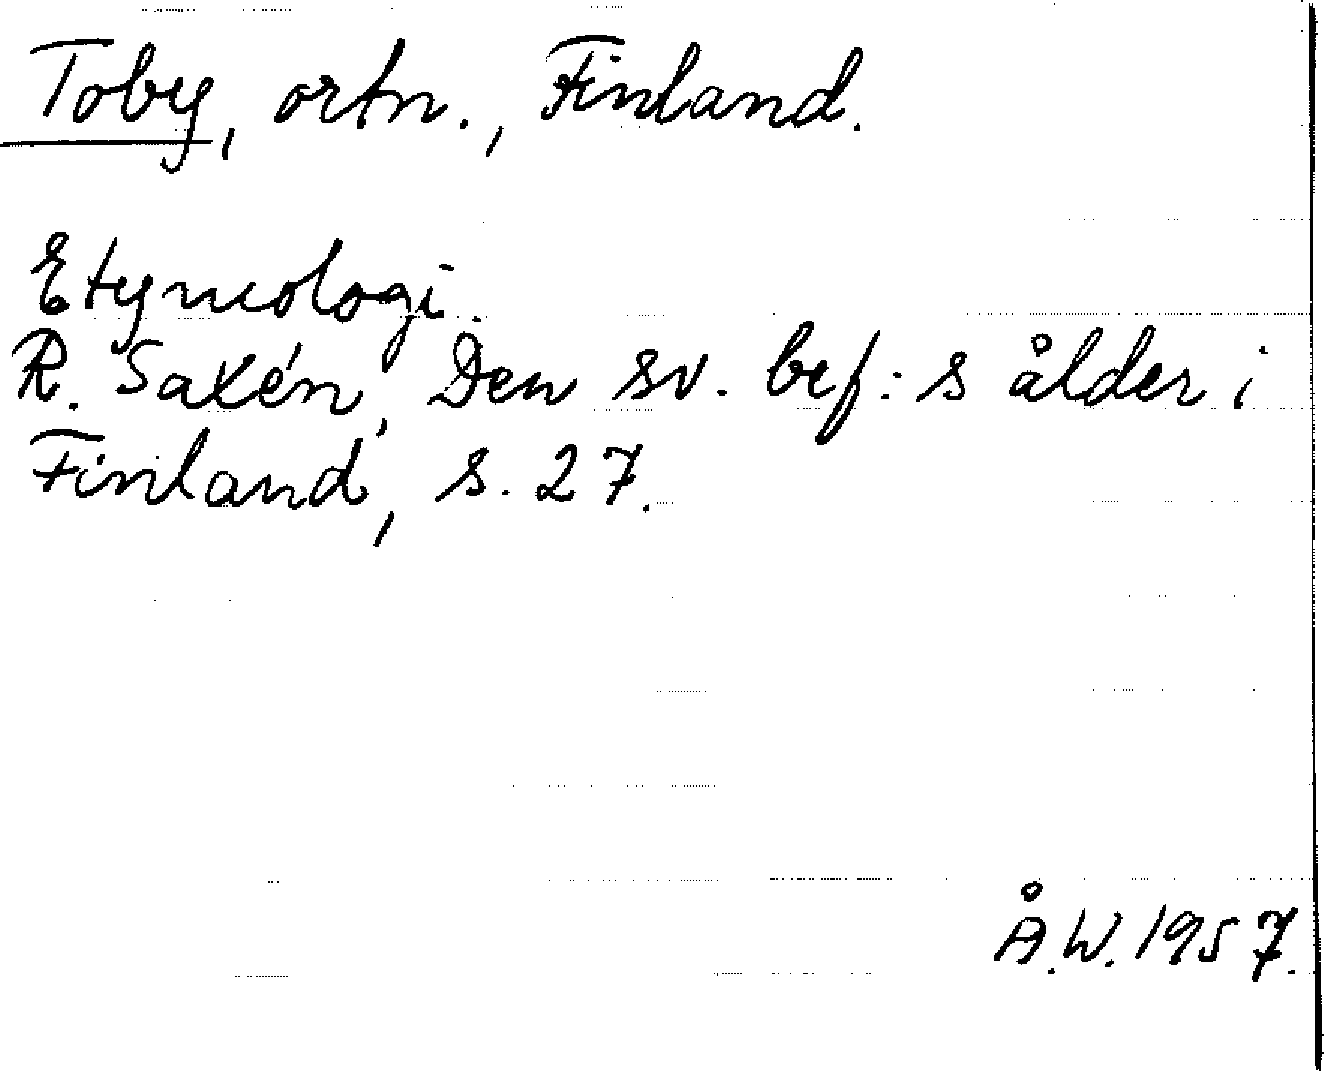 Toby, ortn., Finland.
Etymologi.
R. Saxén, Den sv. bef:s ålder i
Finland, s. 27.
Å.W. 1957.